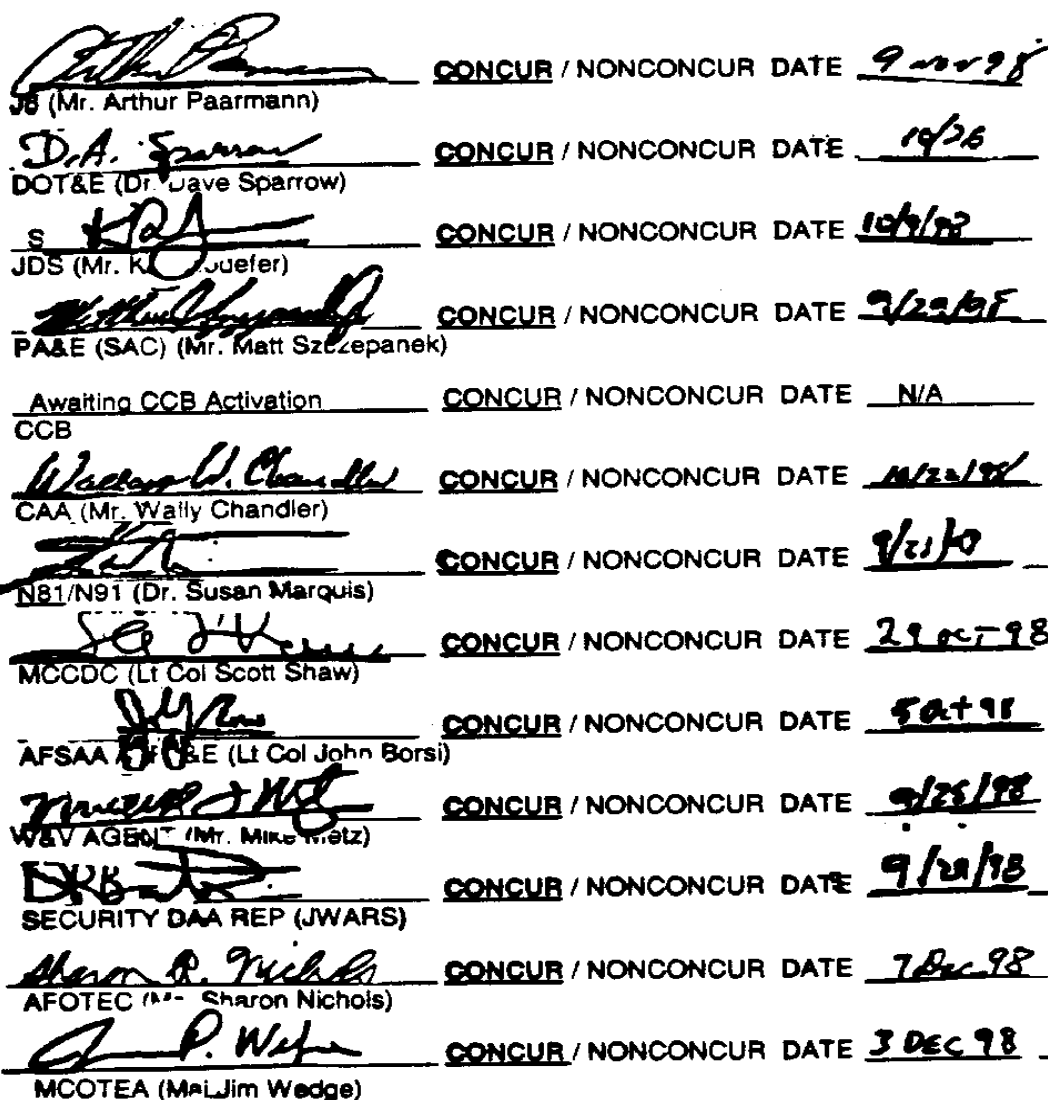 CONCUR / NONCONCUR DATE 9 Nov 98
J8 (Mr. Arthur Paarmann)
D.A. Sparrow CONCUR / NONCONCUR DATE 10/26
DOT&E (Dr. Dave Sparrow)
S CONCUR / NONCONCUR DATE 10/9/98
JDS (Mr.
CONCUR / NONCONCUR DATE 9/29/98
PA&E (SAC) (Mr. Matt Szczepanek)
Awaiting CCB Activation CONCUR / NONCONCUR DATE N/A
CCB
Wallace W. Chandler CONCUR / NONCONCUR DATE
CAA (Mr. Wally Chandler)
CONCUR / NONCONCUR DATE
N81/N91 (Dr. Susan Marquis)
CONCUR / NONCONCUR DATE 29 Oct 98
MCCDC (Lt Col Scott Shaw)
CONCUR / NONCONCUR DATE 5 Oct 98
AFSAA (Lt Col John Borsi)
CONCUR / NONCONCUR DATE 9/25/98
V&V AGENT (Mr. Mike Metz)
CONCUR / NONCONCUR DATE
SECURITY DAA REP (JWARS)
Sharon R. Nichols CONCUR / NONCONCUR DATE 7 Dec 98
AFOTEC Sharon Nichols)
CONCUR / NONCONCUR DATE 3 DEC 98
MCOTEA (Maj Jim Wedge)